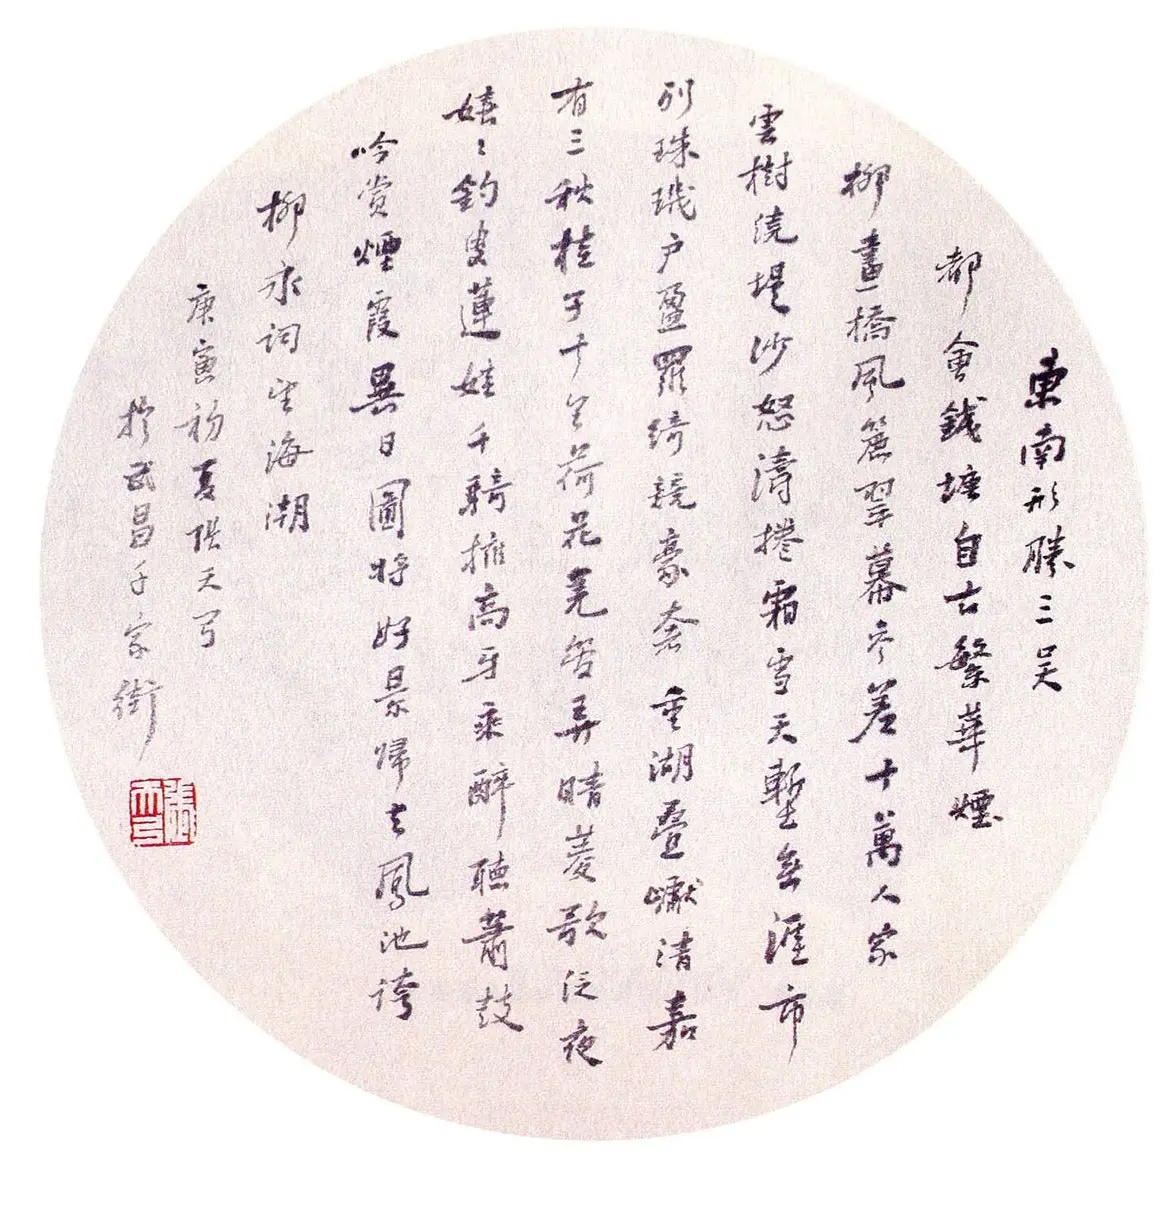 東南形勝三吳
都會錢塘自古繁華煙
柳畫橋風簾翠幕參差十萬人家
雲樹繞堤沙怒濤捲霜雪天塹無涯市
列珠璣户盈羅綺競豪奢重湖疊巘清嘉
有三秋桂子十里荷花羌管弄晴菱歌泛夜
嬉〻釣叟蓮娃千騎擁高牙乘醉聽蕭鼓
吟賞煙霞異日圖將好景歸去鳳池誇
柳永詞望海潮
庚寅初夏張天弓
於武昌千家街
張天弓